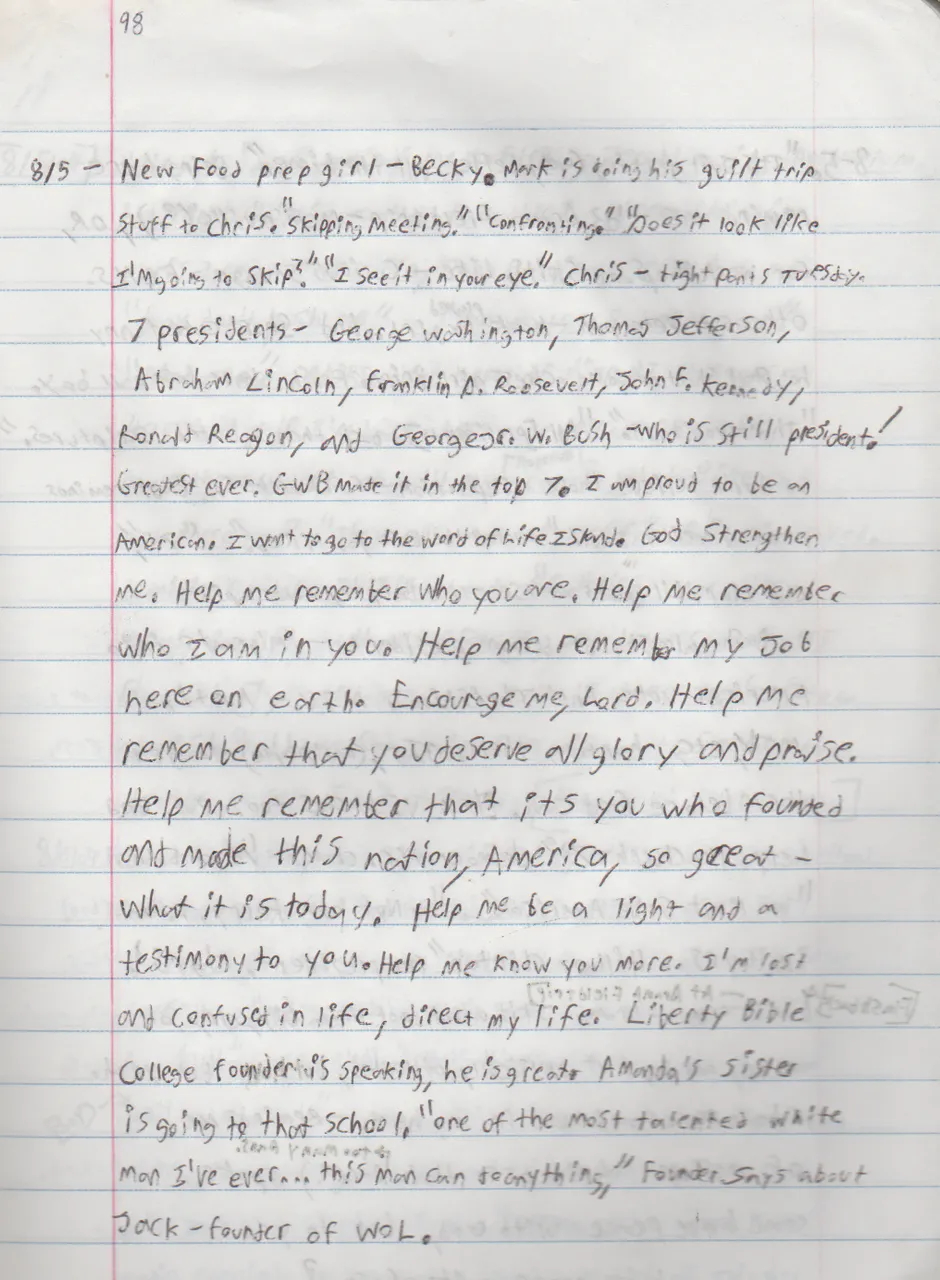 98
8/5 - New Food prep girl - Becky. Mark is doing his guilt trip
stuff to Chris. "Skipping Meeting." "Confronting." "Does it look like
I'm going to skip?" "I see it in your eye." Chris - tight pants Tuesday.
7 presidents - George Washington, Thomas Jefferson,
Abraham Lincoln, Franklin D. Roosevelt, John F. Kennedy,
Ronald Reagan, and George jr. W. Bush - who is still president!
Greatest ever. GWB made it in the top 7. I am proud to be an
American. I want to go to the word of Life Island. God Strengthen
me. Help me remember who you are. Help me remember
who I am in you. Help me remember my Job
here on earth. Encourage me, Lord. Help me
remember that you deserve all glory and praise.
Help me remember that its you who founded
and made this nation, America, so great -
what it is today. Help me be a light and a
testimony to you. Help me know you more. I'm lost
and confused in life, direct my life. Liberty Bible
College founder is speaking, he is great. Amanda's sister
is going to that school. "one of the most talented white
man I've ever... this man can do anything," Founder says about
Jack - founder of WOL.